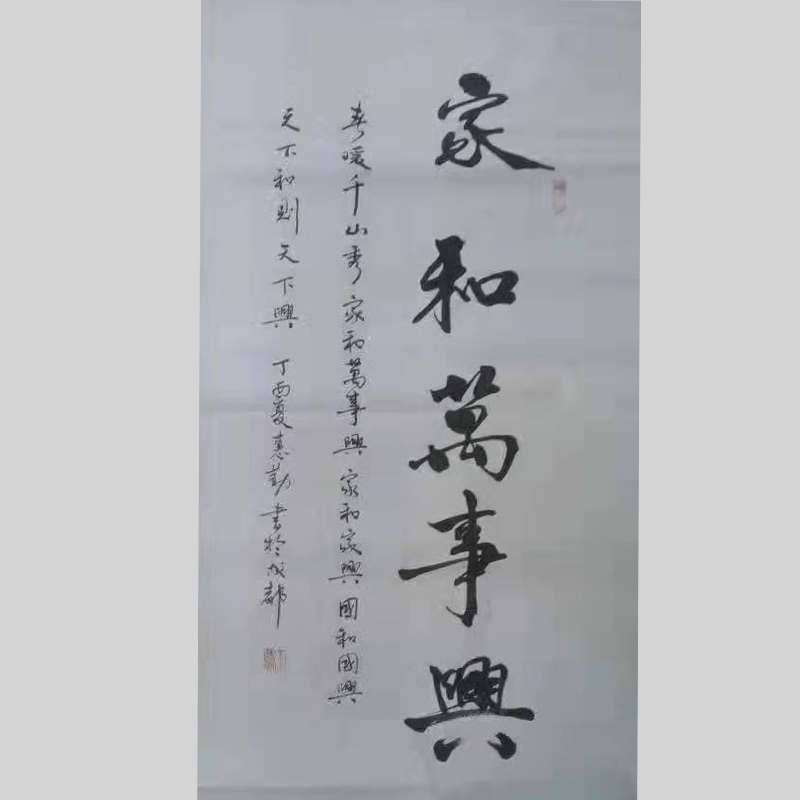 家和萬事興
春暖千山秀家和萬事興家和家興國和國興
天下和則天下興 丁酉夏惠勤書於成都